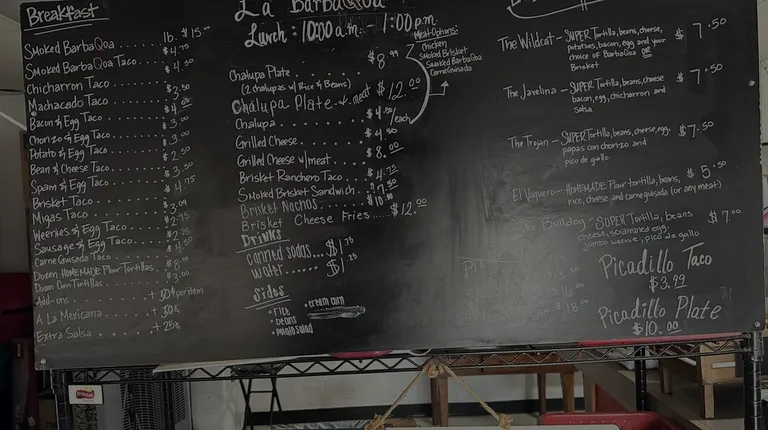 Breakfast
Smoked BarbaQoa lb. $15.
Smoked BarbaQoa Taco $4.75
Chicharron Taco $4.50
Machacado Taco $3.50
Bacon & Egg Taco
Chorizo & Egg Taco $3.00
Potato & Egg Taco $3.00
Bean & Cheese Taco $2.50
Spam & Egg Taco $3.50
Brisket Taco $4.75
Migas Taco
Weenies & Egg Taco
Sausage & Egg Taco
Carne Guisada Taco $4.50
Dozen HOMEMADE Flour Tortillas $8.00
Dozen Corn Tortillas
Add-ons per item
A La Mexicana
Extra Salsa + 25¢
La BarbaQoa
Lunch: 10:00 a.m. - 1:00 p.m.
Meat Options:
chicken
Smoked Brisket
Smoked BarbaQoa
Carne Guisada
Chalupa Plate $8.99
(2 chalupas w/ Rice & Beans)
Chalupa Plate + meat $12.00
Chalupa $4.50/each
Grilled Cheese
Grilled Cheese w/ meat $8.00
Brisket Ranchero Taco $4.75
Smoked Brisket Sandwich
Brisket Nachos
Brisket Cheese Fries $12.00
Drinks
canned sodas $1.75
water $1.25
Sides
• rice
• beans
• potato salad
• cream corn
The Wildcat - SUPER Tortilla, beans, cheese, $7.50
potatoes, bacon, egg and your
choice of BarbaQoa or
Brisket
The Javelina - SUPER Tortilla, beans, cheese $7.50
bacon, egg, chicharron and
salsa
The Trojan - SUPER Tortilla, beans, cheese, egg, $7.50
papas con chorizo and
pico de gallo
El Vaquero - HOMEMADE Flour tortilla, beans, $5.50
rice, cheese and carne guisada (or any meat)
The Bulldog - SUPER Tortilla, beans $7.00
cheese, scrambled egg,
jumbo weenie, pico de gallo
Picadillo Taco
$3.99
Picadillo Plate
$10.00